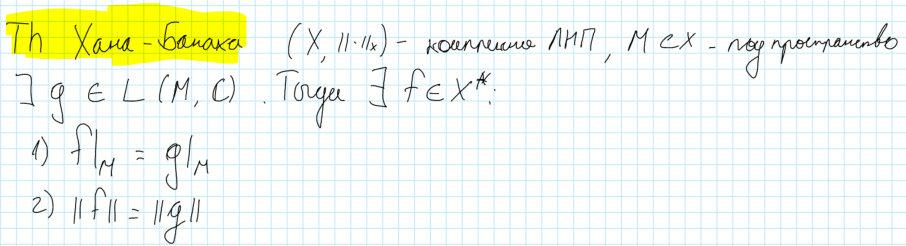 Th Хана-Банаха (X, ||·||ₓ) - комплексное ЛНП, M ⊂ X - подпространство
] g ∈ L(M, C). Тогда ∃ f ∈ X*:
1) f|_M = g|_M
2) ||f|| = ||g||